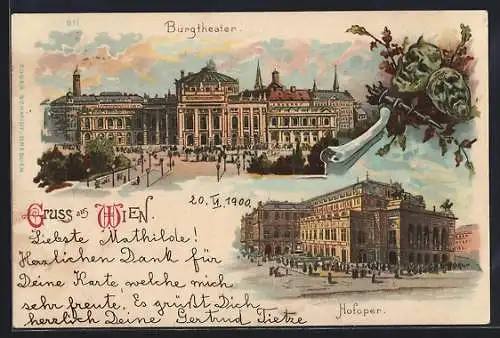 Burgtheater.
Gruss aus Wien.
20. VI. 1900.
Liebste Mathilde!
Herzlichen Dank für
Deine Karte, welche mich
sehr freute. Es grüßt Dich
herzlich Deine Gertrud Tietze
Hofoper.